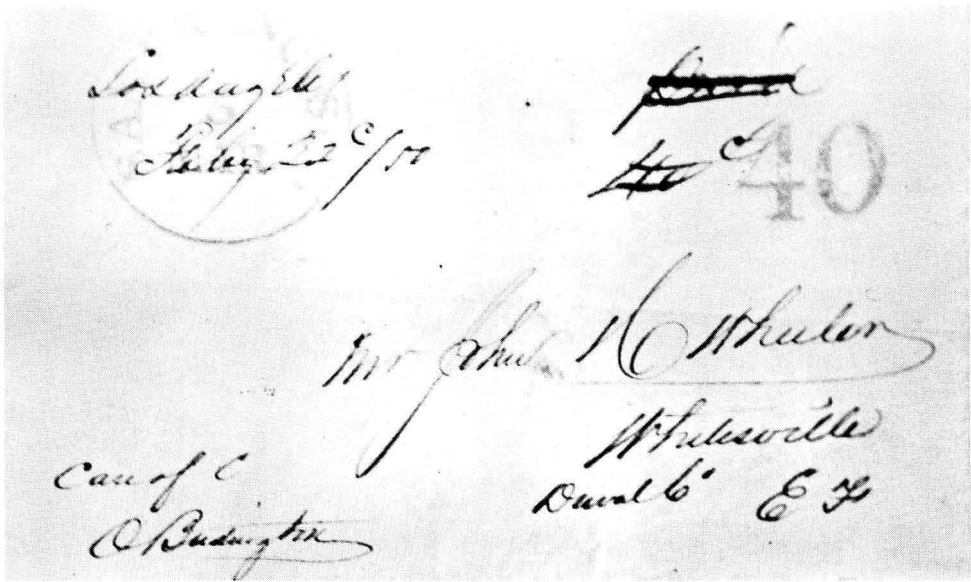 Los Angeles
Feby 22
40
Mr John Wheeler
Whitesville
Duval Co E Fa
Care of C
O Budington